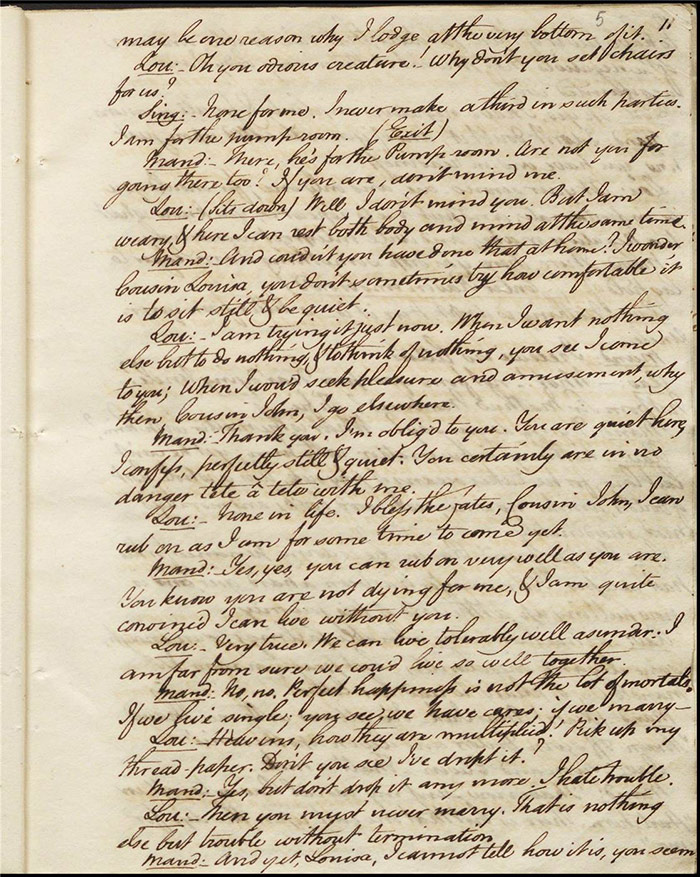 5 11
may be one reason why I lodge at the very bottom of it.
Lou:- Oh you odious creature! Why don't you set chairs
for us?
Sing:- None for me. I never make a third in such parties.
I am for the pump room. (Exit)
Mand:- There, he's for the Pump room. Are not you for
going there too? If you are, don't mind me.
Lou:- (Sits down) Will, I don't mind you. But I am
weary, & here I can rest both body and mind at the same time.
Mand:- And coud'nt you have done that at home? I wonder
Cousin Louisa, you don't sometimes try how comfortable it
is to sit still & be quiet.
Lou:- I am trying it just now. When I want nothing
else but to do nothing, & to think of nothing, you see I come
to you; When I woud seek pleasure and amusement, why
then, Cousin John, I go elsewhere.
Mand:- Thank you. I'm oblig'd to you. You are quiet here,
I confess, perfectly still & quiet. You certainly are in no
danger tete à tete with me.
Lou:- None in life. I bless the fates, Cousin John, I can
rub on as I am for some time to come yet.
Mand:- Yes, yes, you can rub on very well as you are.
You know you are not dying for me, & I am quite
convinced I can live without you.
Lou:- Very true. We can live tolerably well asunder. I
am far from sure we coud live so well together.
Mand:- No, no. Perfect happiness is not the lot of mortals.
If we live single, you see, we have cares; if we marry-
Lou:- Heavens, how they are multiplied! Pick up my
thread-paper. Don't you see I've dropt it?
Mand:- Yes, but don't drop it any more. I hate trouble.
Lou:- Then you must never marry. That is nothing
else but trouble without termination
Mand:- And yet, Louisa, I cannot tell how it is, you seem